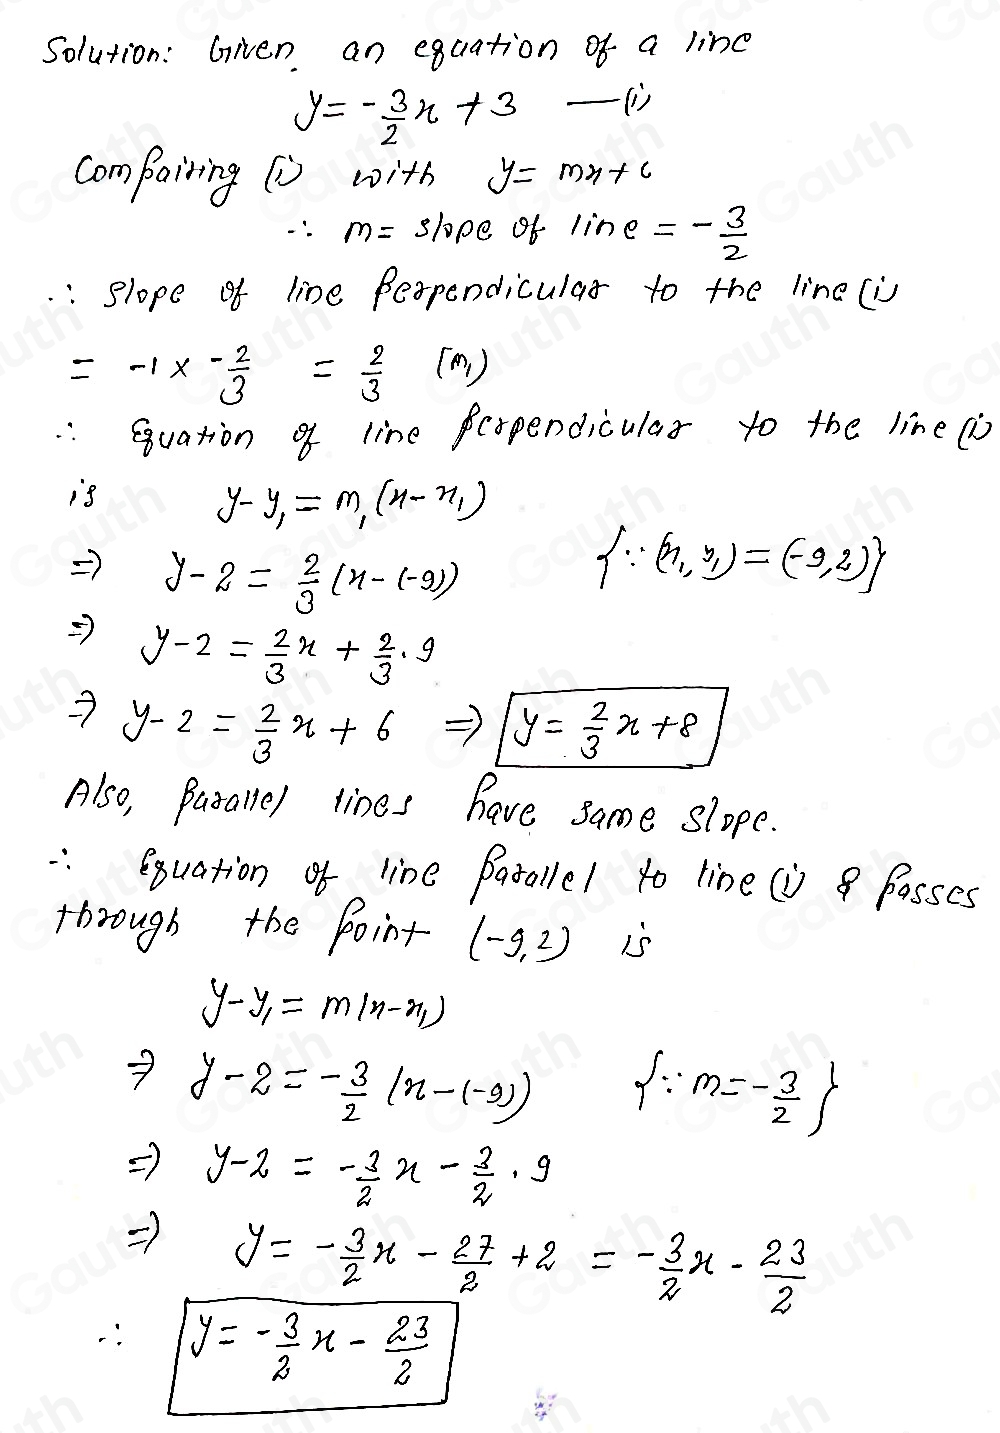 Solution: Given an equation of a line
y = -3/2 x + 3 —(i)
Comparing (i) with y = mx + c
∴ m = slope of line = -3/2
∴ slope of line perpendicular to the line (i)
= -1 × -2/3 = 2/3 (m₁)
∴ Equation of line perpendicular to the line (i)
is y - y₁ = m₁(x - x₁)
⇒ y - 2 = 2/3 (x - (-9)) {∵ (x₁, y₁) = (-9, 2)}
⇒ y - 2 = 2/3 x + 2/3 · 9
⇒ y - 2 = 2/3 x + 6 ⇒ y = 2/3 x + 8
Also, parallel lines have same slope.
∴ Equation of line parallel to line (i) & passes
through the point (-9, 2) is
y - y₁ = m(x - x₁)
⇒ y - 2 = -3/2 (x - (-9)) {∵ m = -3/2}
⇒ y - 2 = -3/2 x - 3/2 · 9
⇒ y = -3/2 x - 27/2 + 2 = -3/2 x - 23/2
∴ y = -3/2 x - 23/2